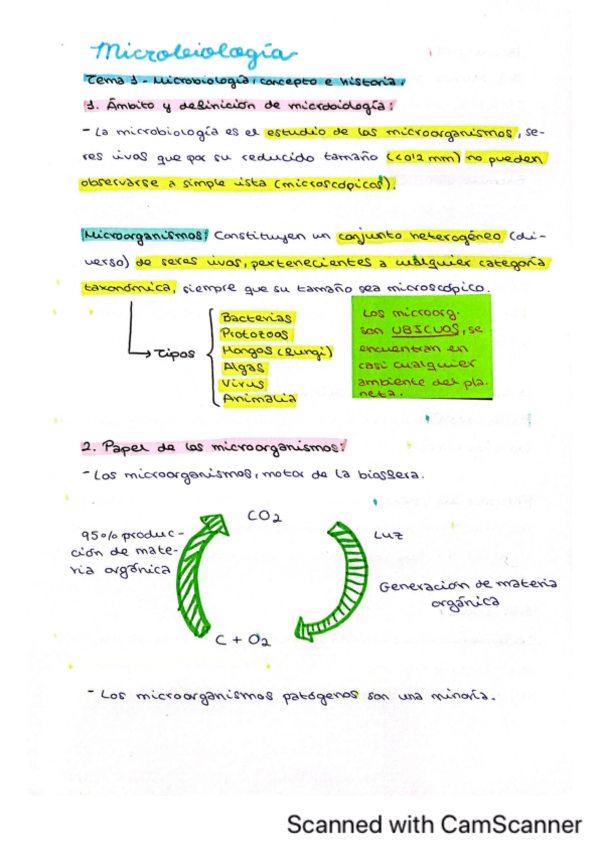 Microbiología
Tema 1 - Microbiología: concepto e historia.
1. Ámbito y definición de microbiología:
- La microbiología es el estudio de los microorganismos, se-
res vivos que por su reducido tamaño (<0'2 mm) no pueden
observarse a simple vista (microscópicos).
Microorganismos: Constituyen un conjunto heterogéneo (di-
verso) de seres vivos, pertenecientes a cualquier categoría
taxonómica, siempre que su tamaño sea microscópico.
Tipos
Bacterias
Protozoos
Hongos (Fungi)
Algas
Virus
Animalia
Los microorg.
son UBICUOS, se
encuentran en
casi cualquier
ambiente del pla-
neta.
2. Papel de los microorganismos:
- Los microorganismos, motor de la biosfera.
CO2
95% produc-
ción de mate-
ria orgánica
Luz
Generación de materia
orgánica
C + O2
- Los microorganismos patógenos son una minoría.
Scanned with CamScanner